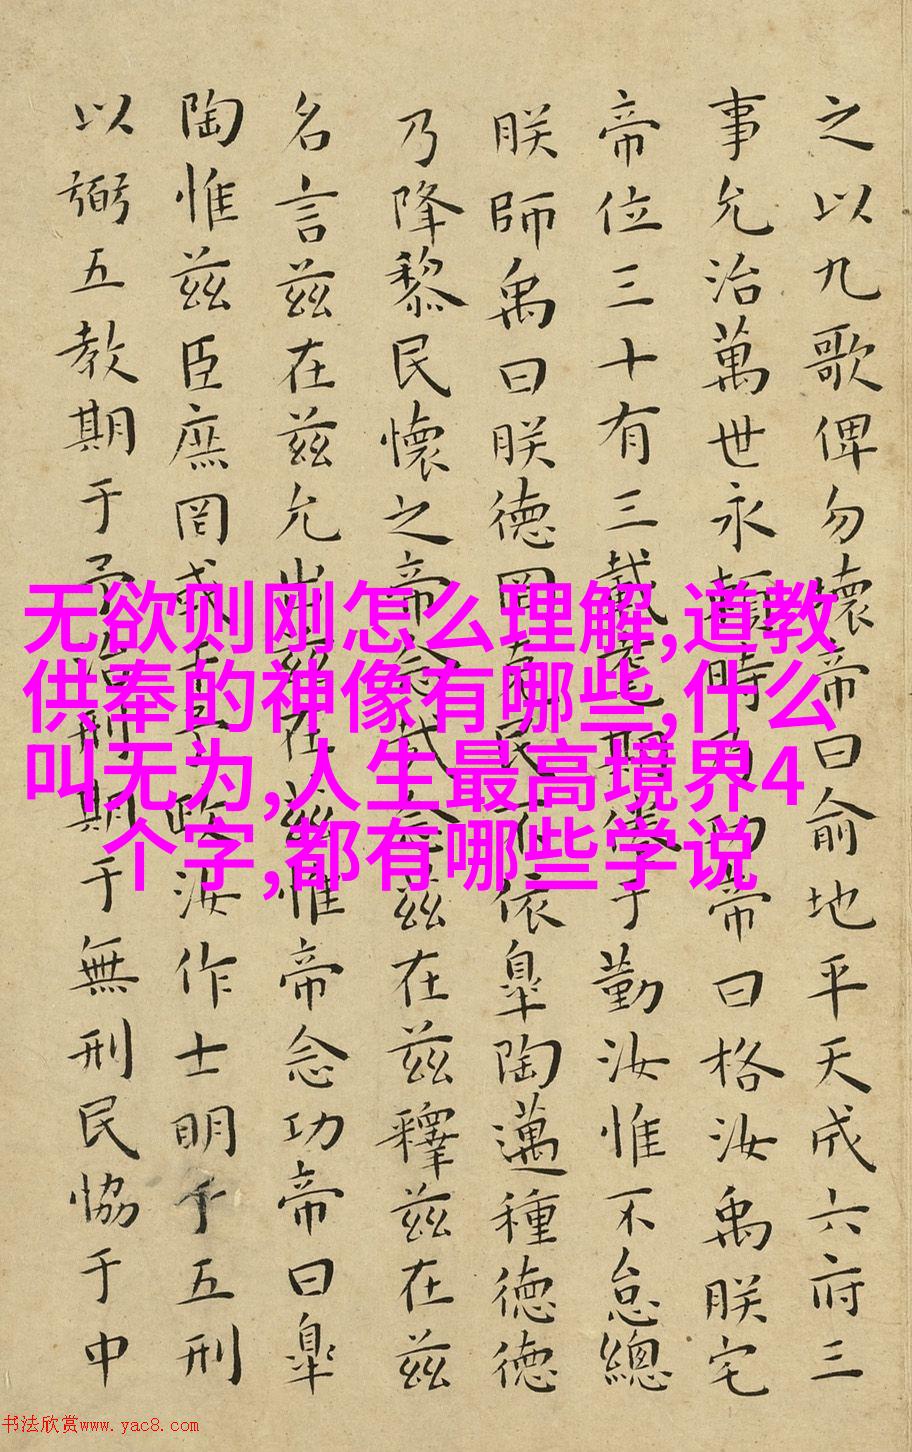 之以九歌俾勿壞帝曰俞地平天成六府三
事允治萬世永賴時乃功帝曰格汝禹朕宅
帝位三十有三載耄期倦于勤汝惟不怠總
朕師禹曰朕德罔克民不依皐陶邁種德德
乃降黎民懷之帝念哉念兹在兹釋兹在兹
名言兹在兹允出兹在兹惟帝念功帝曰皐
陶惟兹臣庶罔或干予政汝作士明于五刑
以弼五教期于予治刑期于無刑民協于中
无欲则刚怎么理解,道教
供奉的神像有哪些,什么
叫无为,人生最高境界4
个字,都有哪些学说
书法欣赏www.yac8.com